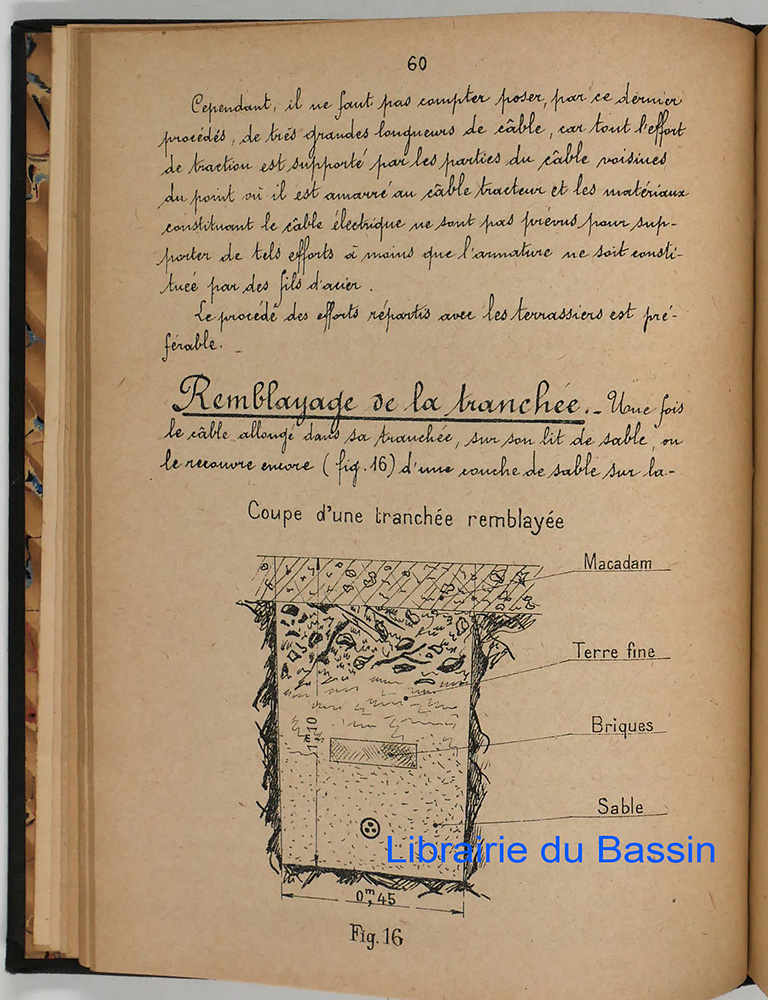 60
Cependant, il ne faut pas compter poser, par ce dernier
procédés, de trés grandes longueurs de câble, car tout l'effort
de traction est supporté par les parties du câble voisines
du point où il est amarré au câble tracteur et les matériaux
constituant le câble électrique ne sont pas prévus pour sup-
porter de tels efforts à moins que l'armature ne soit consti-
tuée par des fils d'acier.
Le procédé des efforts répartis avec les terrassiers est pré-
férable.
Remblayage de la tranchée. _ Une fois
le câble allongé dans sa tranchée, sur son lit de sable, on
le recouvre encore (fig. 16) d'une couche de sable sur la-
Coupe d'une tranchée remblayée
Macadam
Terre fine
Briques
Sable
1m10
0m,45
Fig. 16
Librairie du Bassin